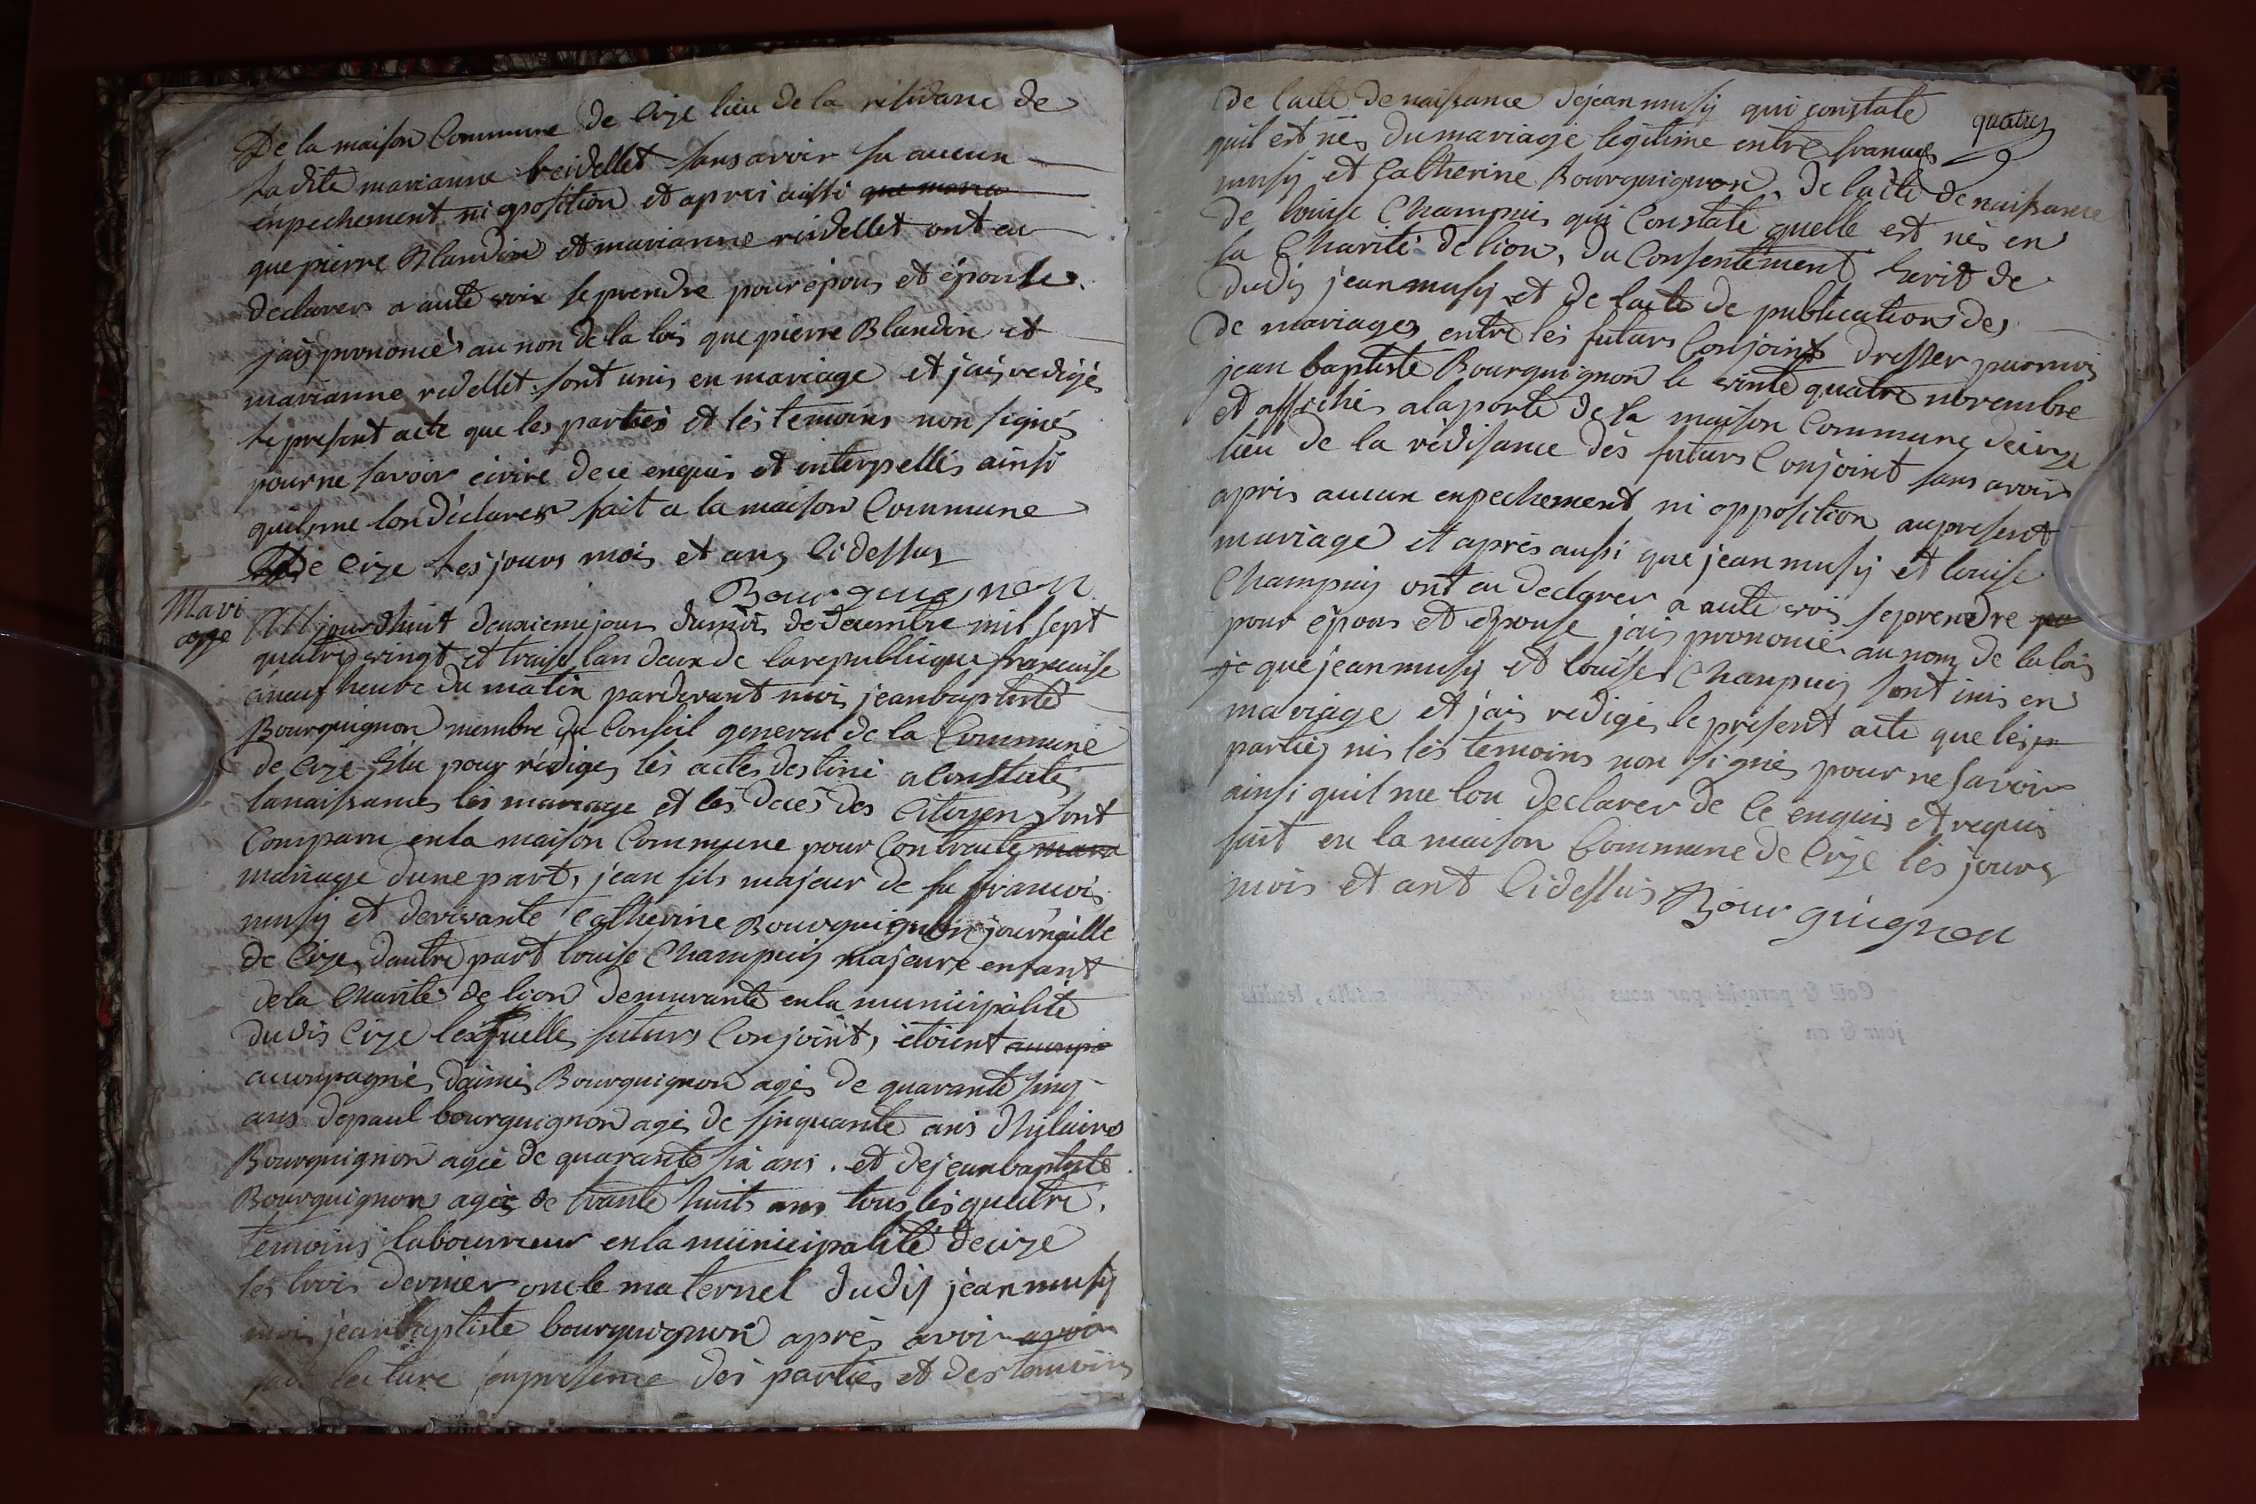 De la maison Commune de Cize lieu de la residance de
la dite marianne reidellet sans avoir su aucun
enpechement ni oposition et apres aussi que
que pierre Blandin et marianne reidellet ont eu
declarer a aute voix se prendre pour épous et épouse
jais prononcé au non de la lois que pierre Blandin et
marianne redellet sont unis en mariage et jais redigé
le present acte que les parties et les temoins non signés
pour ne savoir écrire de ce enquis et interpellés ainsi
quil me lon déclarer fait a la maison Commune
de Cize les jours mois et ans Cidessus
Bourguignon
Mari
age
AUjourdhuit deuxieme jour du mois de decembre mil sept
quatre vingt et traise lan deux de la republique francaise
a neuf heure du matin pardevant moi jean baptiste
Bourguignon membre du Conseil general de la Commune
de Cize Elu pour rédiges les actes destiné a Constate
la naissances les mariage et les deces des Citoyen sont
Comparu en la maison Commune pour Contracte mara
mariage dune part, jean fils majeur de fu francois
musy et de vivante Catherine Bourguignon journaille
de Cize, dautre part louise Champuis majeure enfant
de la Charité de lion demurante en la municipalité
dudis Cize lesquelle futurs Conjoint, etoient acconpa
acconpagnés daimé Bourguignon agés de quarante sing
ans de paul bourguignon agé de sinquante ans dhilaire
Bourguignon agée de quarante six ans. et de jean baptiste
Bourguignon agés de trante huits ans tous les quatre
temoins laboureur en la municipalité de cize
les trois dernier oncle maternel dudis jean musy
moi jean baptiste bourguignon après avoir avoir
fait lecture en presence des parties et des temoins
quatres
de lacte de naissance de jean musy qui constate
quil est nés du mariage legitime entre francois
musy et Catherine Bourguignon, de lacte de naissance
de louise Champuis qui Constate quelle est nés en
la Charité de lion, du Consentement Ecrit de
dudis jean musy et de lacte de publications des
de mariages entre les futurs Conjoints dresser par moi
jean baptiste Bourguignon le vinte quatre novembre
et affichés a la porte de la maison Commune de cize
lieu de la rédisance des futurs Conjoint sans avoir
apris aucun enpechement ni opposition au present
mariage et après aussi que jean musy et louise
Champuis ont eu declarer a aute vois se prendre po
pour épous et épouse jais prononcé au nom de la lois
je que jean musy et louise Champuis sont unis en
mariage et jais redigés le present acte que les pa
parties nis les temoins non signés pour ne savoir
ainsi quil me lon declarer de ce enquis et requis
fait en la maison Commune de Cize les jours
mois et ant Cidessus Bourguignon